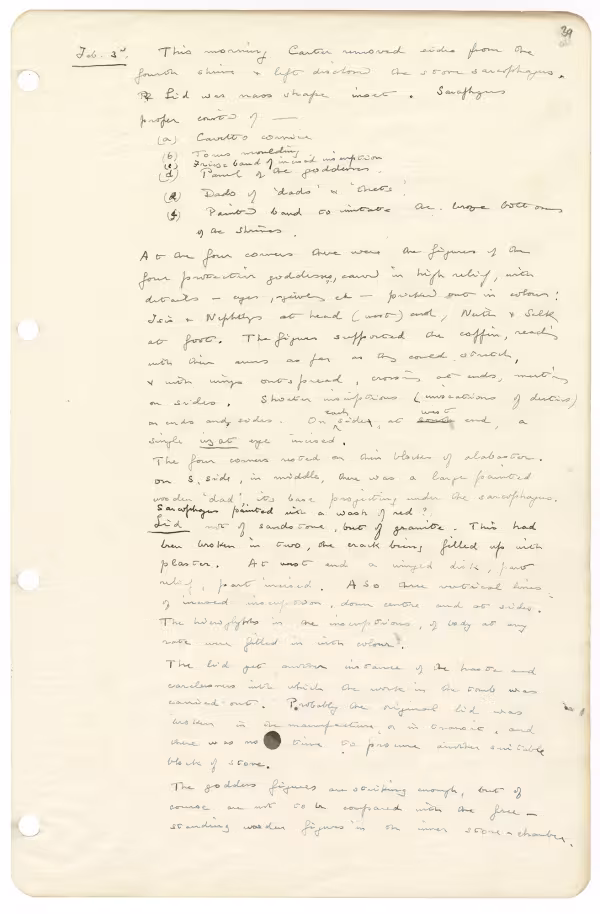 39
Feb. 3rd. This morning Carter removed sides from the
fourth shrine & left disclosed the stone sarcophagus.
Lid was naos shape inset. Sarcophagus
proper consists of —
(a) Cavetto cornice
(b) Torus moulding
(c) Frieze band of incised inscription
(d) Panel of the goddesses.
(e) Dado of 'dads' & 'thets'!
(f) Painted band to imitate the bronze bottoms
of the shrines.
At the four corners there were the figures of the
four protective goddesses, carved in high relief, with
details — eyes, etc — picked out in colour:
Isis & Nephthys at head (west) end, Neith & Selk
at foot. The figures supported the coffin, reaching
with their arms as far as they could stretch,
& with wings outspread, crossing at ends, meeting
on sides. Shorter inscriptions (invocations of deities)
on ends and sides. On each side, at west end, a
single uzat eye incised.
The four corners rested on thin blocks of alabaster.
On S. side, in middle, there was a large painted
wooden 'dad', its base projecting under the sarcophagus.
Sarcophagus painted with a wash of red?
Lid not of sandstone, but of granite. This had
been broken in two, the crack being filled up with
plaster. At west end a winged disk, part
relief, part incised. Also three vertical lines
of incised inscription, down centre and at sides.
The hieroglyphs in the inscriptions, of body at any
rate were filled in with colour.
The lid yet another instance of the haste and
carelessness with which the work in the tomb was
carried out. Probably the original lid was
broken in the manufacture, or in transit, and
there was no time to procure another suitable
block of stone.
The goddess figures are striking enough, but of
course are not to be compared with the free-
standing wooden figures in the inner store-chamber.